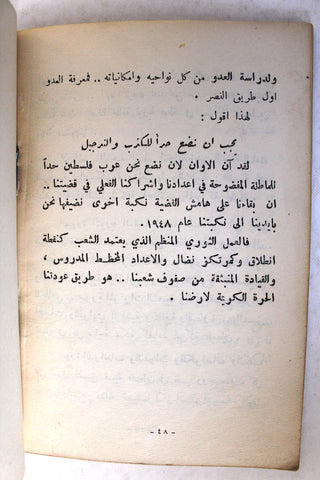 ولدراسة العدو من كل نواحيه وامكانياته .. فمعرفة العدو
اول طريق النصر .
لهذا اقول :
يجب ان نضع حداً للكذب والتدجيل
لقد آن الاوان لان نضع نحن عرب فلسطين حداً
للماطلة المفضوحة في اعدادنا واشراكنا الفعلي في قضيتنا ..
ان بقاءنا على هامش القضية نكبة اخرى نضيفها نحن
بايدينا الى نكبتنا عام ١٩٤٨ .
فالعمل الثوري المنظم الذي يعتمد الشعب كنقطة
انطلاق وكمرتكز نضال والاعداد المخطط المدروس ،
والقيادة المنبثقة من صفوف شعبنا .. هو طريق عودتنا
الحرة الكريمة لارضنا .
- ٤٨ -